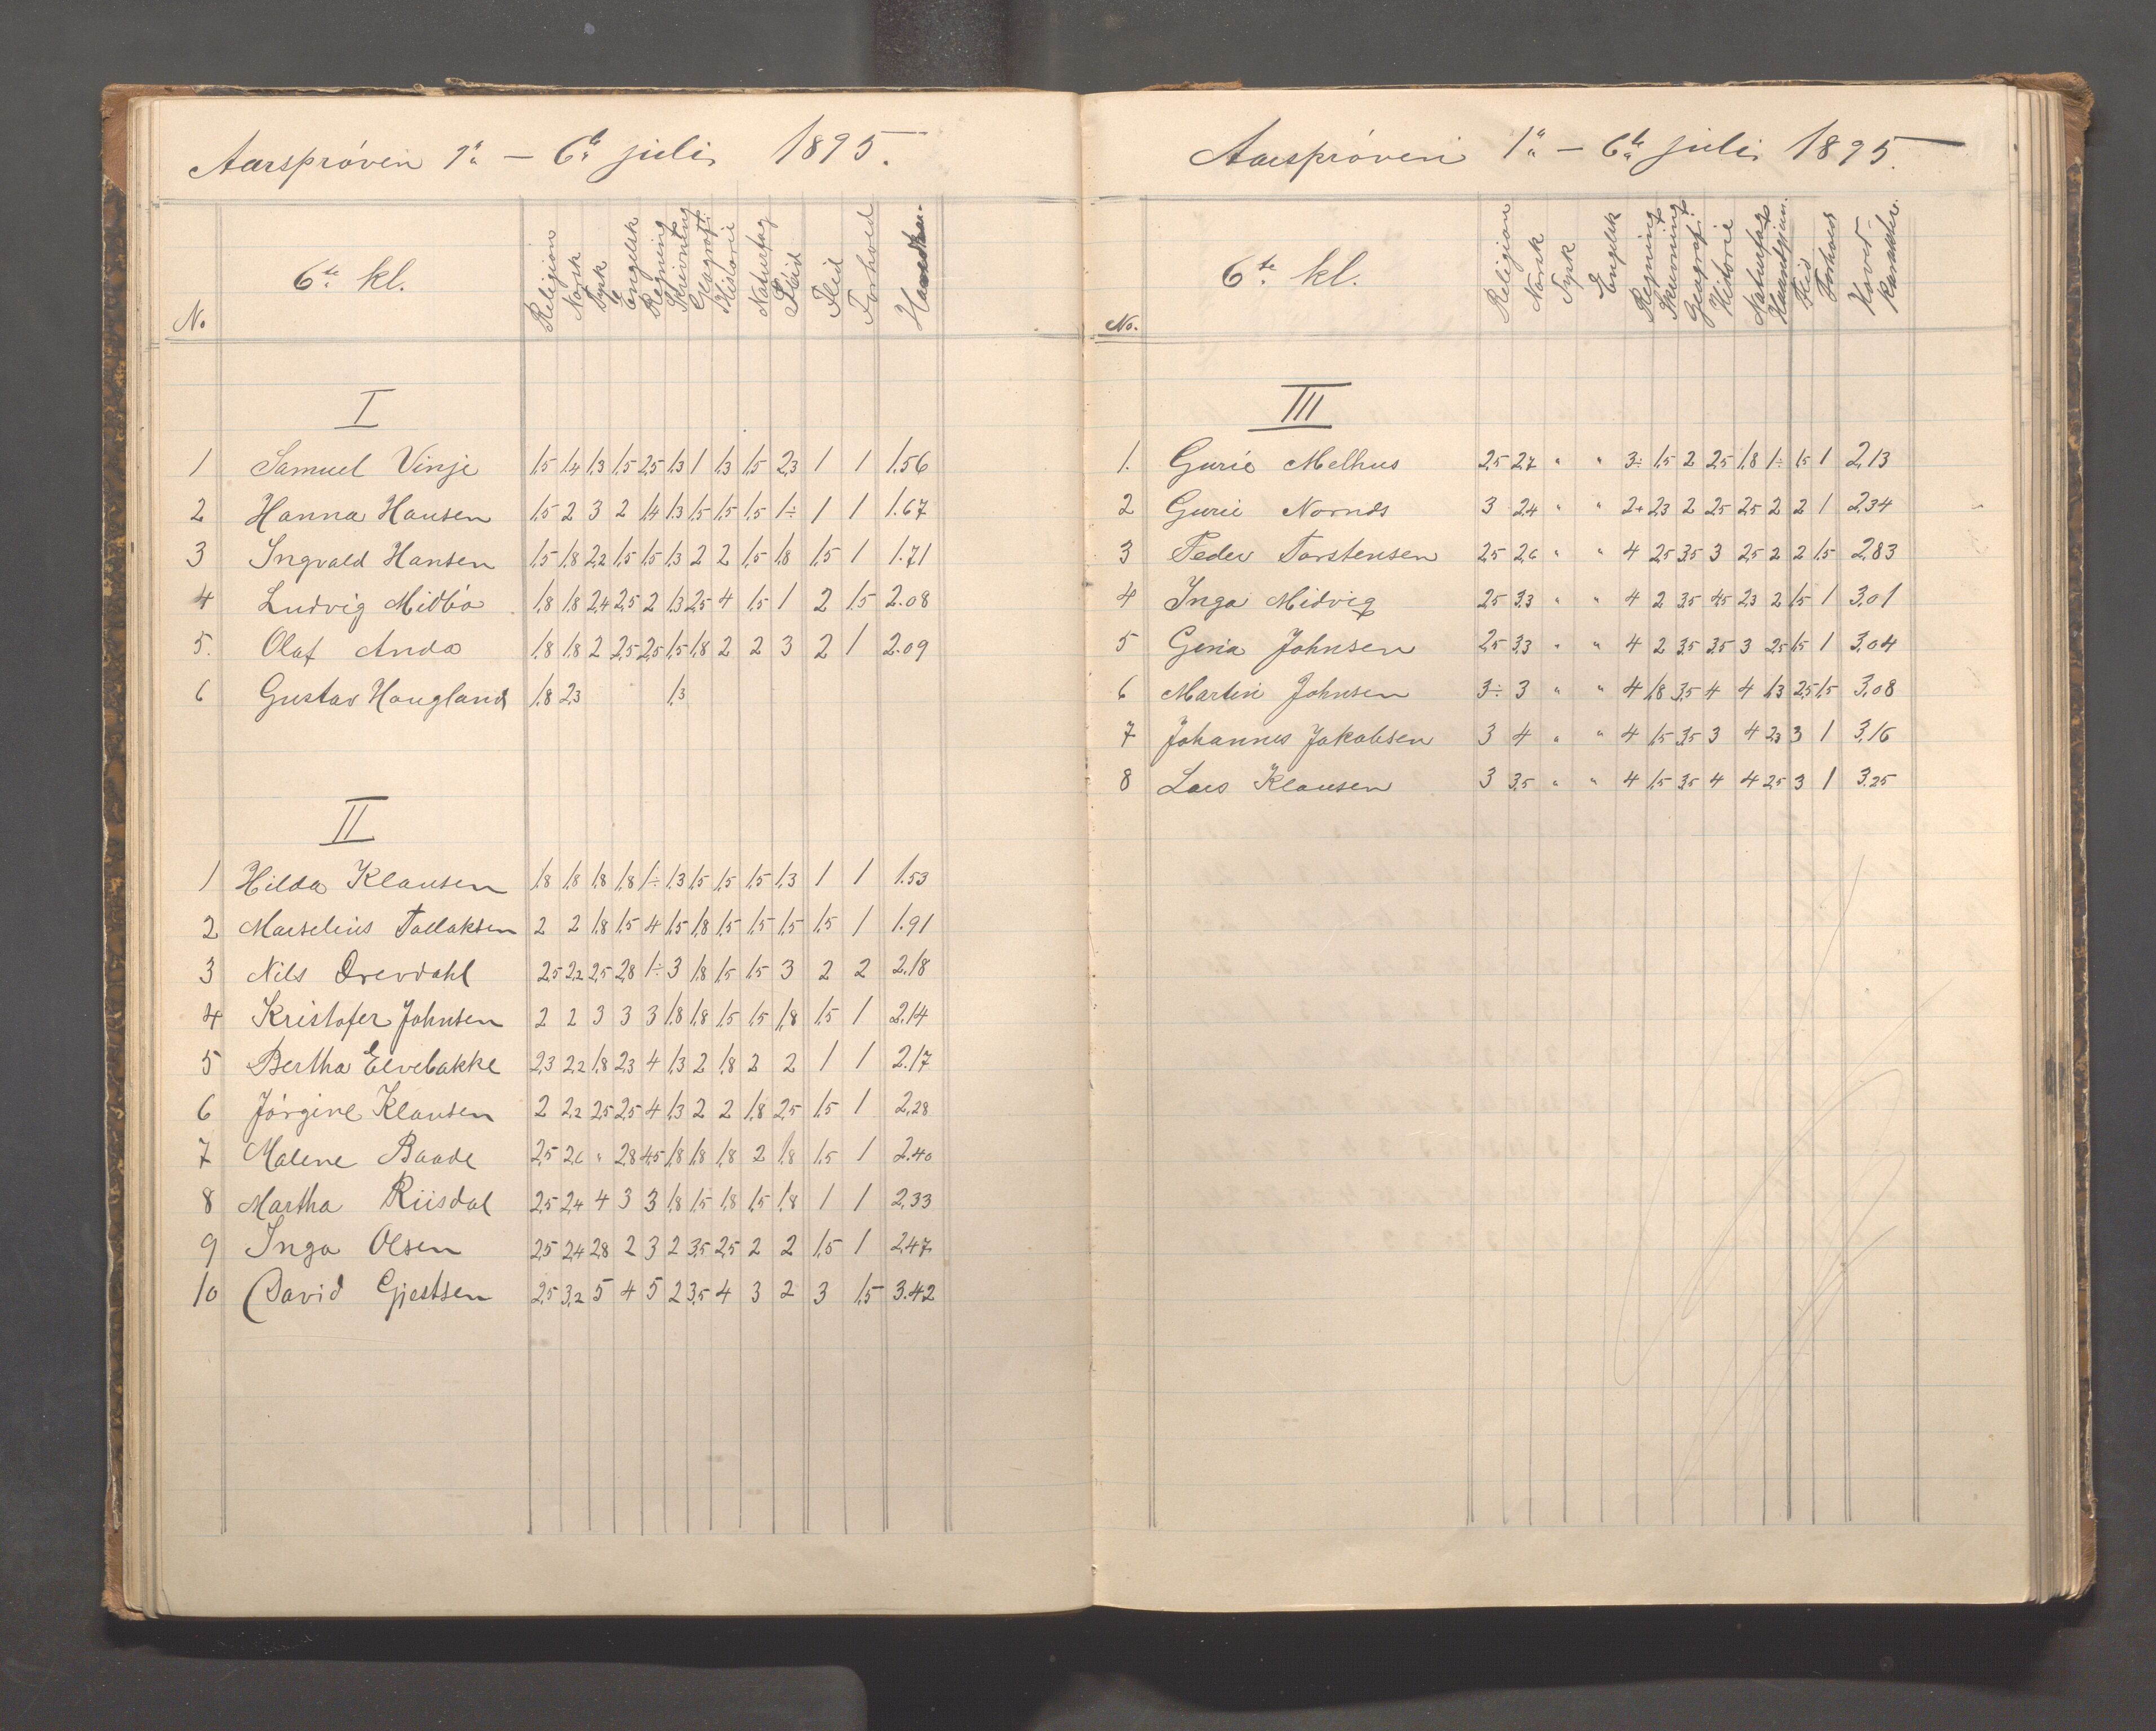 Aarsprøven 1ste – 6te juli 1895.
No. 6te kl. Religion Norsk Tysk Engelsk Regning Skrivning Geografi Historie Naturfag Sløid Flid Forhold
I
1 Samuel Vinje 1,5 1,4 1,3 1,5 2,5 1,3 1 1,3 1,5 2,3 1 1 1.56
2 Hanna Hansen 1,5 2 3 2 1,4 1,3 1,5 1,5 1,5 1÷ 1 1 1.67
3 Ingvald Hansen 1,5 1,8 2,2 1,5 1,5 1,3 2 2 1,5 1,8 1,5 1 1.71
4 Ludvig Midbø 1,8 1,8 2,4 2,5 2 1,3 2,5 4 1,5 1 2 1,5 2.08
5. Olaf Anda 1,8 1,8 2 2,5 2,5 1,5 1,8 2 2 3 2 1 2.09
6 Gustav Haugland 1,8 2,3 1,3
II
1 Hilda Klausen 1,8 1,8 1,8 1,8 1÷ 1,3 1,5 1,5 1,5 1,3 1 1 1.53
2 Marselius Tallaksen 2 2 1,8 1,5 4 1,5 1,8 1,5 1,5 1,5 1,5 1 1.91
3 Nils Drevdahl 2,5 2,2 2,5 2,8 1÷ 3 1,8 1,5 1,5 3 2 2 2.18
4 Kristofer Johnsen 2 2 3 3 3 1,8 1,8 1,5 1,5 1,8 1,5 1 2.14
5 Bertha Elvebakke 2,3 2,2 1,8 2,3 4 1,3 2 1,8 2 2 1 1 2.17
6 Jørgine Klausen 2 2,2 2,5 2,5 4 1,3 2 2 1,8 2,5 1,5 1 2,28
7 Malene Baade 2,5 2,6 " 2,8 4,5 1,8 1,8 1,8 2 1,8 1,5 1 2.40
8 Martha Riisdal 2,5 2,4 4 3 3 1,8 1,5 1,8 1,5 1,8 1 1 2,33
9 Inga Olsen 2,5 2,4 2,8 2 3 2 3,5 2,5 2 2 1,5 1 2,47
10 David Gjestsen 2,5 3,2 5 4 5 2 3,5 4 3 2 3 1,5 3.42
Aarsprøven 1ste – 6te juli 1895.
No. 6te kl. Religion Norsk Tysk Engelsk Regning Skrivning Geografi Historie Naturfag Haandgjern. Flid Forhold Hoved-karakter.
III
1. Gurie Melhus 2,5 2,7 " " 3÷ 1,5 2 2,5 1,8 1÷ 1,5 1 2,13
2 Gurie Nornds 3 2,4 " " 2+ 2,3 2 2,5 2,5 2 2 1 2,34
3 Peder Torstensen 2,5 2,6 " " 4 2,5 3,5 3 2,5 2 2 1,5 2,83
4 Inga Midvig 2,5 3,3 " " 4 2 3,5 4,5 2,3 2 1,5 1 3,01
5 Gina Johnsen 2,5 3,3 " " 4 2 3,5 3,5 3 2,5 1,5 1 3,04
6 Martin Johnsen 3÷ 3 " " 4 1,8 3,5 4 4 1,3 2,5 1,5 3,08
7 Johannes Jakobsen 3 4 " " 4 1,5 3,5 3 4 2,3 3 1 3,16
8 Lars Klausen 3 3,5 " " 4 1,5 3,5 4 4 2,5 3 1 3.25